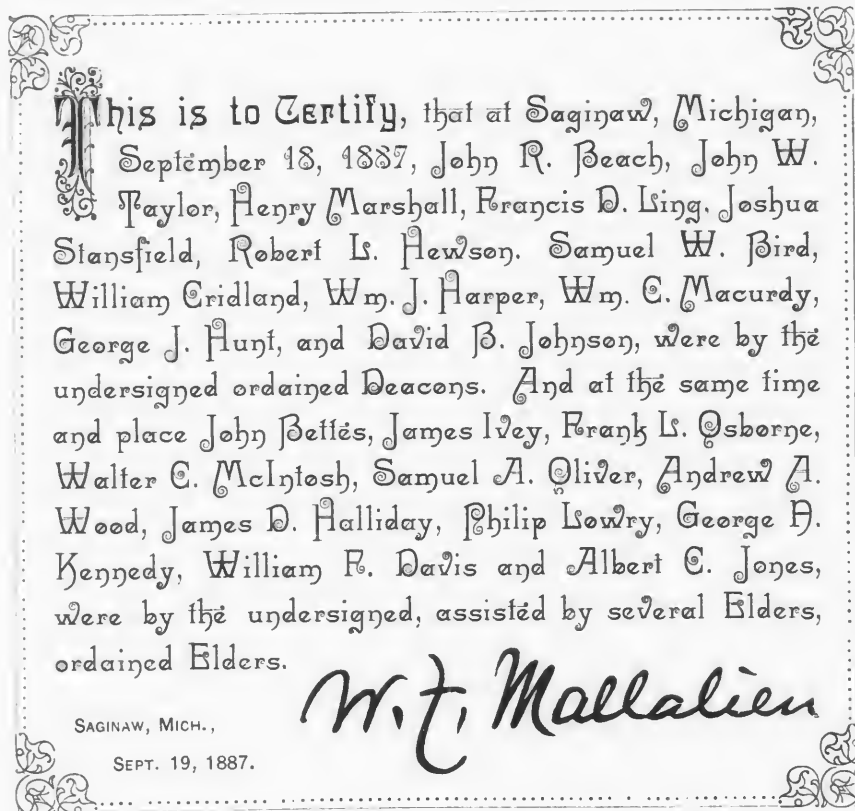 This is to Certify, that at Saginaw, Michigan,
September 18, 1887, John R. Beach, John W.
Taylor, Henry Marshall, Francis D. Ling. Joshua
Stansfield, Robert L. Hewson. Samuel W. Bird,
William Cridland, Wm. J. Harper, Wm. C. Macurdy,
George J. Hunt, and David B. Johnson, were by the
undersigned ordained Deacons. And at the same time
and place John Bettes, James Ivey, Frank L. Osborne,
Walter C. McIntosh, Samuel A. Oliver, Andrew A.
Wood, James D. Halliday, Philip Lowry, George H.
Kennedy, William F. Davis and Albert C. Jones,
were by the undersigned, assisted by several Elders,
ordained Elders.
W. F. Mallalieu
SAGINAW, MICH.,
SEPT. 19, 1887.